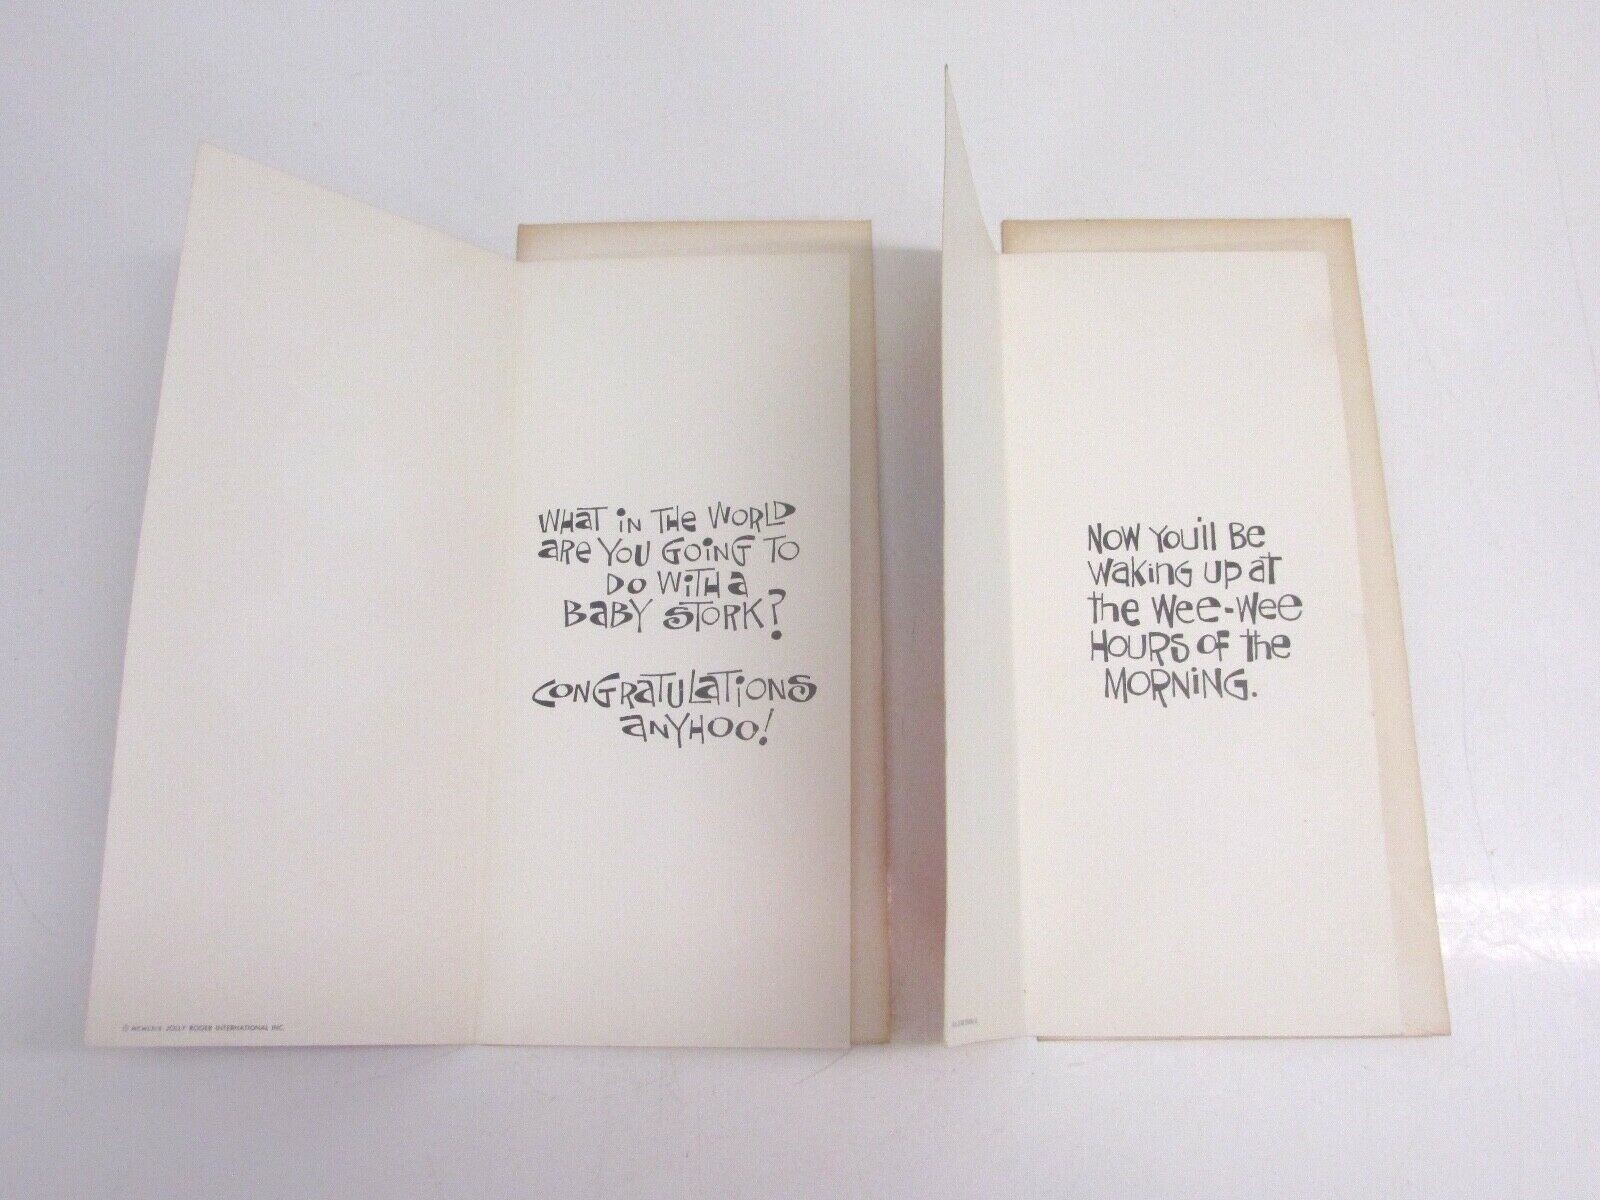 WHAT IN THE WORLD
ARE YOU GOING TO
DO WITH A
BABY STORK?
CONGRATULATIONS
ANYHOO!
© MCMLXIX JOLLY ROGER INTERNATIONAL INC.
NOW YOU'll BE
WAKING UP AT
the WEE-WEE
HOURS OF the
MORNING.